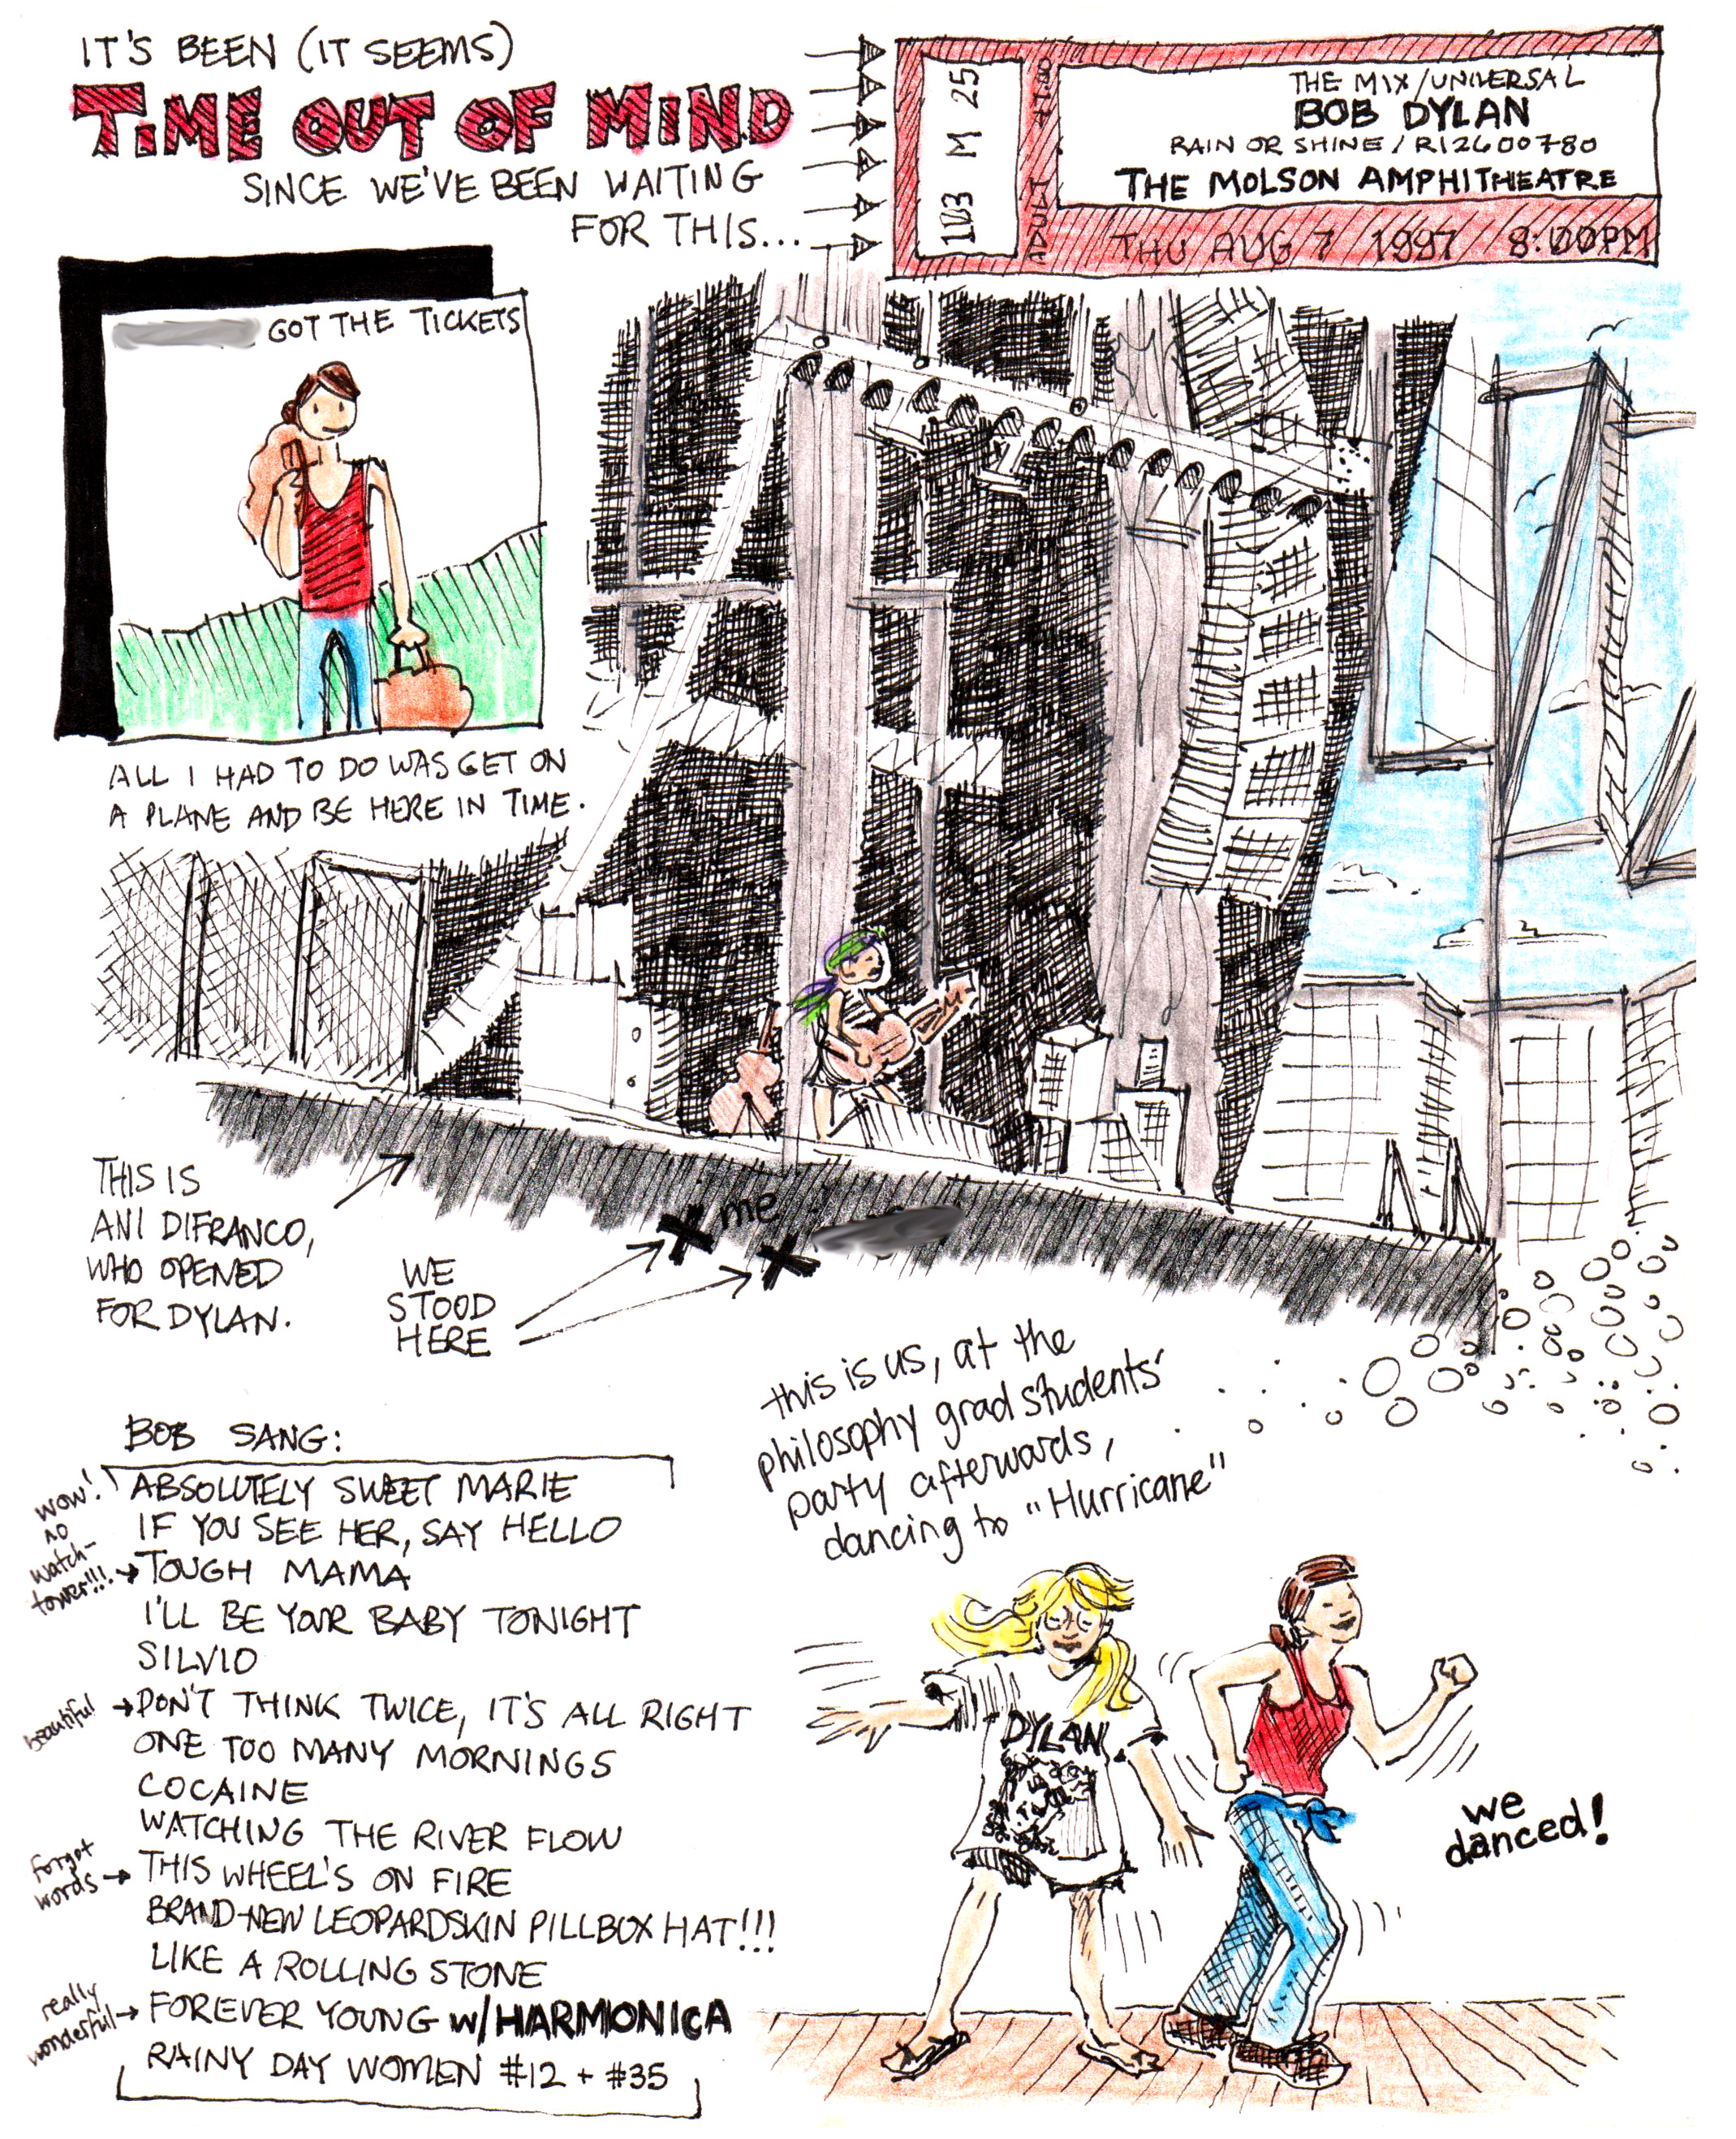 IT'S BEEN (IT SEEMS)
TiME OUT OF MiND
SINCE WE'VE BEEN WAITING
FOR THIS...
103 M 25
THE MIX/UNIVERSAL
BOB DYLAN
RAIN OR SHINE / R12600780
THE MOLSON AMPHITHEATRE
THU AUG 7 1997 8:00PM
GOT THE TICKETS
ALL I HAD TO DO WAS GET ON
A PLANE AND BE HERE IN TIME.
THIS IS
ANI DIFRANCO,
WHO OPENED
FOR DYLAN.
me
WE
STOOD
HERE
this is us, at the
philosophy grad students'
party afterwards,
dancing to "Hurricane"
BOB SANG:
wow!
no
watch-
tower!!!
ABSOLUTELY SWEET MARIE
IF YOU SEE HER, SAY HELLO
TOUGH MAMA
I'LL BE YOUR BABY TONIGHT
SILVIO
beautiful
DON'T THINK TWICE, IT'S ALL RIGHT
ONE TOO MANY MORNINGS
COCAINE
WATCHING THE RIVER FLOW
forgot
words
THIS WHEEL'S ON FIRE
BRAND-NEW LEOPARDSKIN PILLBOX HAT!!!
LIKE A ROLLING STONE
really
wonderful
FOREVER YOUNG w/HARMONICA
RAINY DAY WOMEN #12 + #35
DYLAN
we
danced!